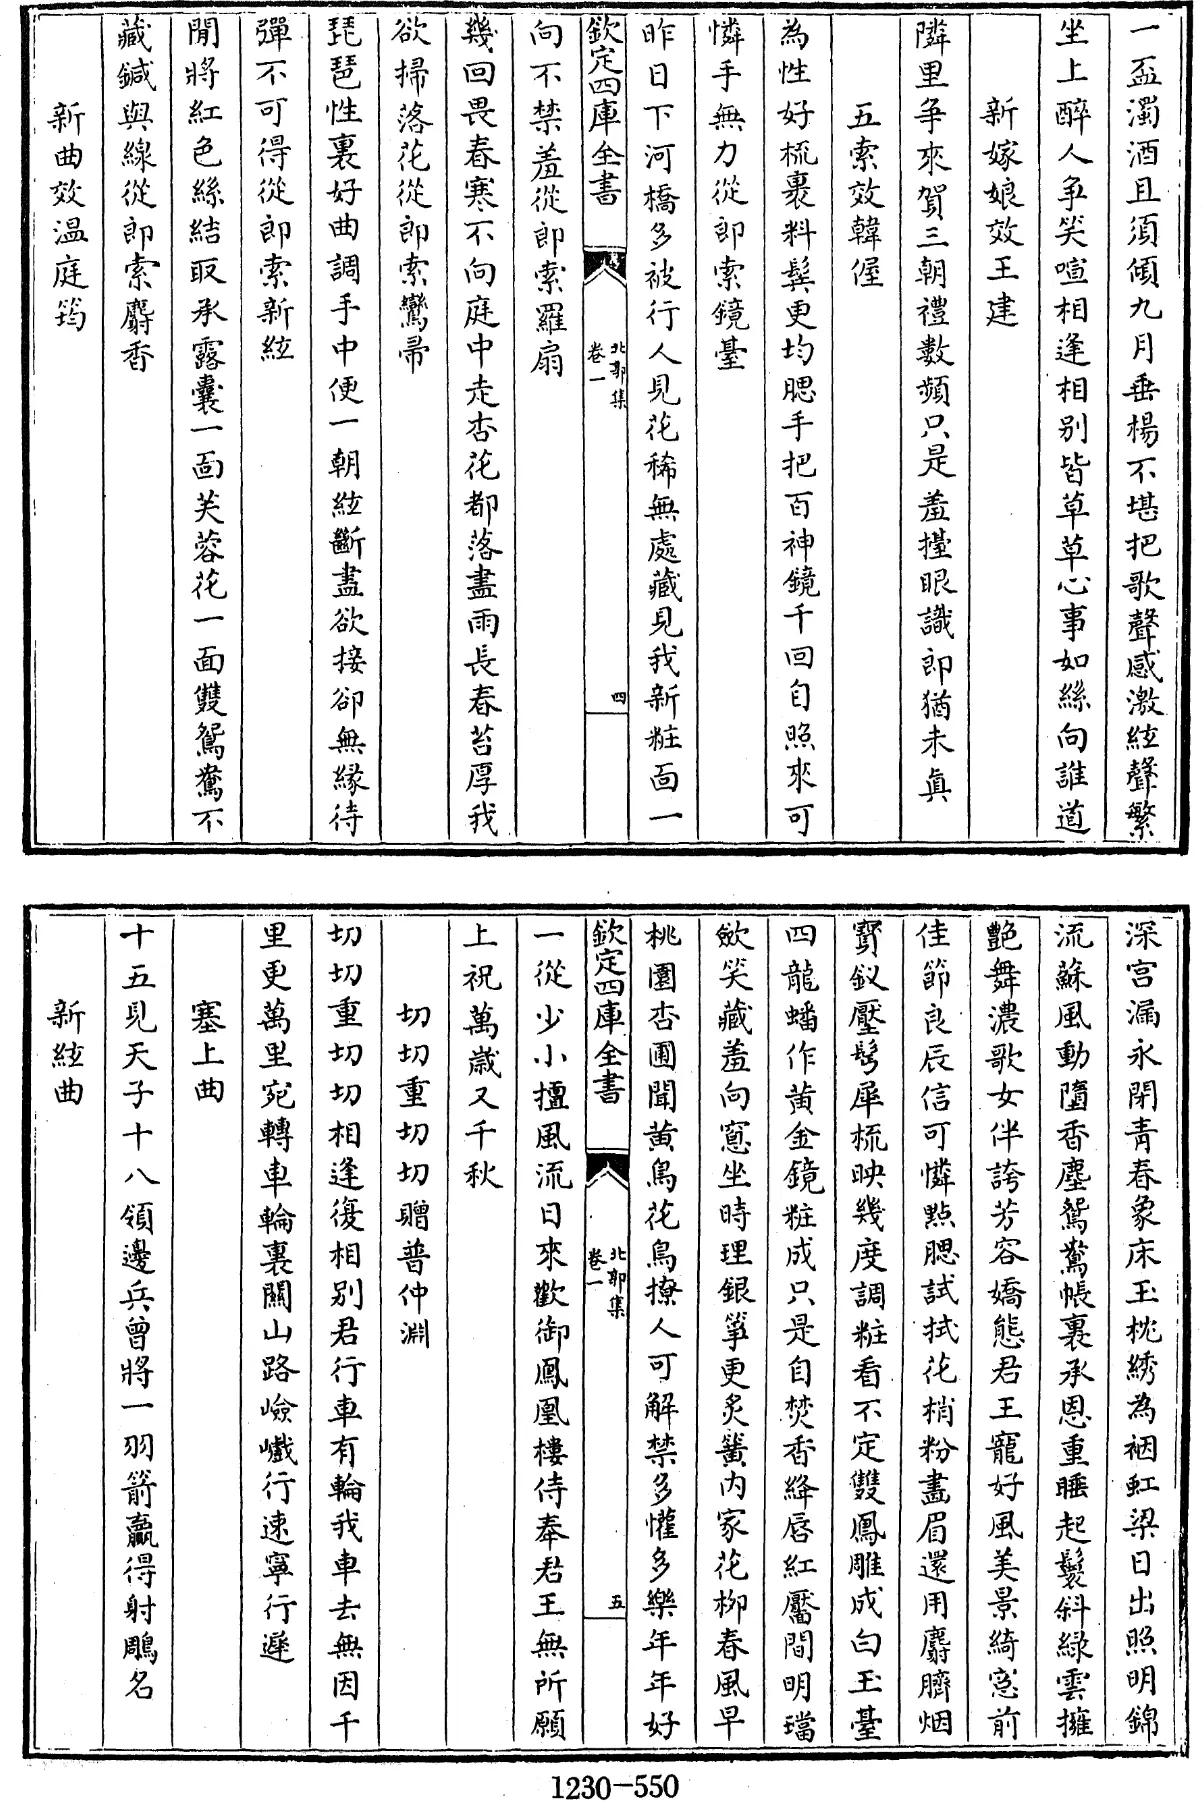 一盃濁酒且須傾九月垂楊不堪把歌聲感激絃聲繁
坐上醉人争笑喧相逢相别皆草草心事如絲向誰道
新嫁娘效王建
隣里争來賀三朝禮數頻只是羞擡眼識郎猶未眞
五索效韓偓
為性好梳裹料鬂更均腮手把百神鏡千回自照來可
憐手無力從郎索鏡臺
昨日下河橋多被行人見花稀無處藏見我新粧面一
欽定四庫全書
北郭集
卷一
四
向不禁羞從郎索羅扇
幾回畏春寒不向庭中走杏花都落盡雨長春苔厚我
欲掃落花從郎索鸞帚
琵琶性裏好曲調手中便一朝絃斷盡欲接卻無緣待
彈不可得從郎索新絃
閒將紅色絲結取承露囊一面芙蓉花一面雙鴛鴦不
藏鍼與線從郎索麝香
新曲效温庭筠
深宫漏永閉青春象床玉枕綉為裀虹梁日出照明錦
流蘇風動墮香塵鴛鴦帳裏承恩重睡起鬟斜緑雲擁
艶舞濃歌女伴誇芳容嬌態君王寵好風美景綺窓前
佳節良辰信可憐點腮試拭花梢粉畫眉還用麝臍烟
寳釵壓髩犀梳映幾度調粧看不定雙鳳雕成白玉臺
四龍蟠作黄金鏡粧成只是自焚香絳唇紅靨間明璫
斂笑藏羞向窓坐時理銀箏更炙簧内家花柳春風早
桃園杏圃聞黄鳥花鳥撩人可解禁多懽多樂年年好
欽定四庫全書
北郭集
卷一
五
一從少小擅風流日來歡御鳳凰樓侍奉君王無所願
上祝萬歲又千秋
切切重切切贈普仲淵
切切重切切相逢復相别君行車有輪我車去無因千
里更萬里宛轉車輪裏關山路嶮巇行速寧行遲
塞上曲
十五見天子十八領邊兵曾將一羽箭贏得射鵰名
新絃曲
1230-550